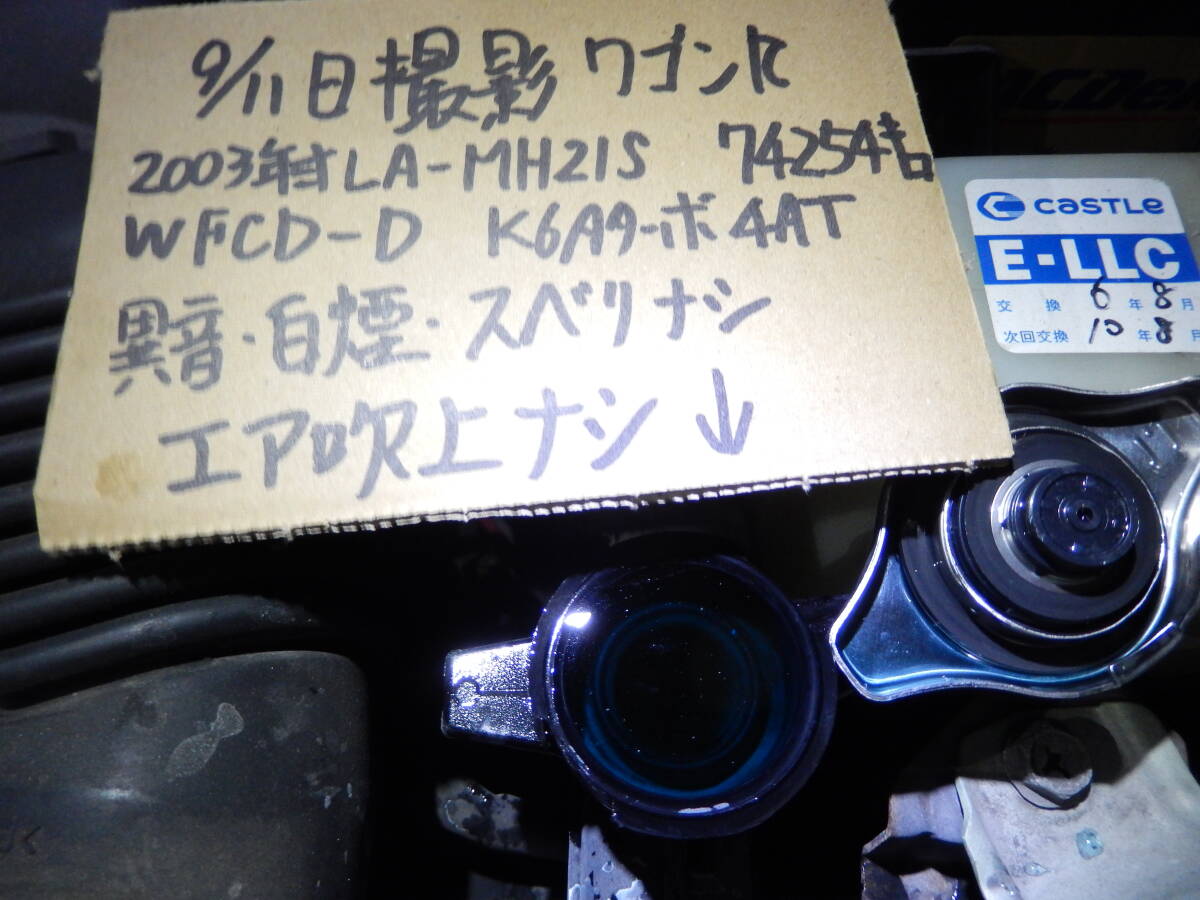 9/11日撮影 ワゴンR
2003年式 LA-MH21S 74254キロ
WFCD-D K6Aターボ 4AT
異音・白煙・スベリナシ
エア吹上ナシ ↓
CASTLE
E-LLC
交換 6年8月
次回交換 10年8月